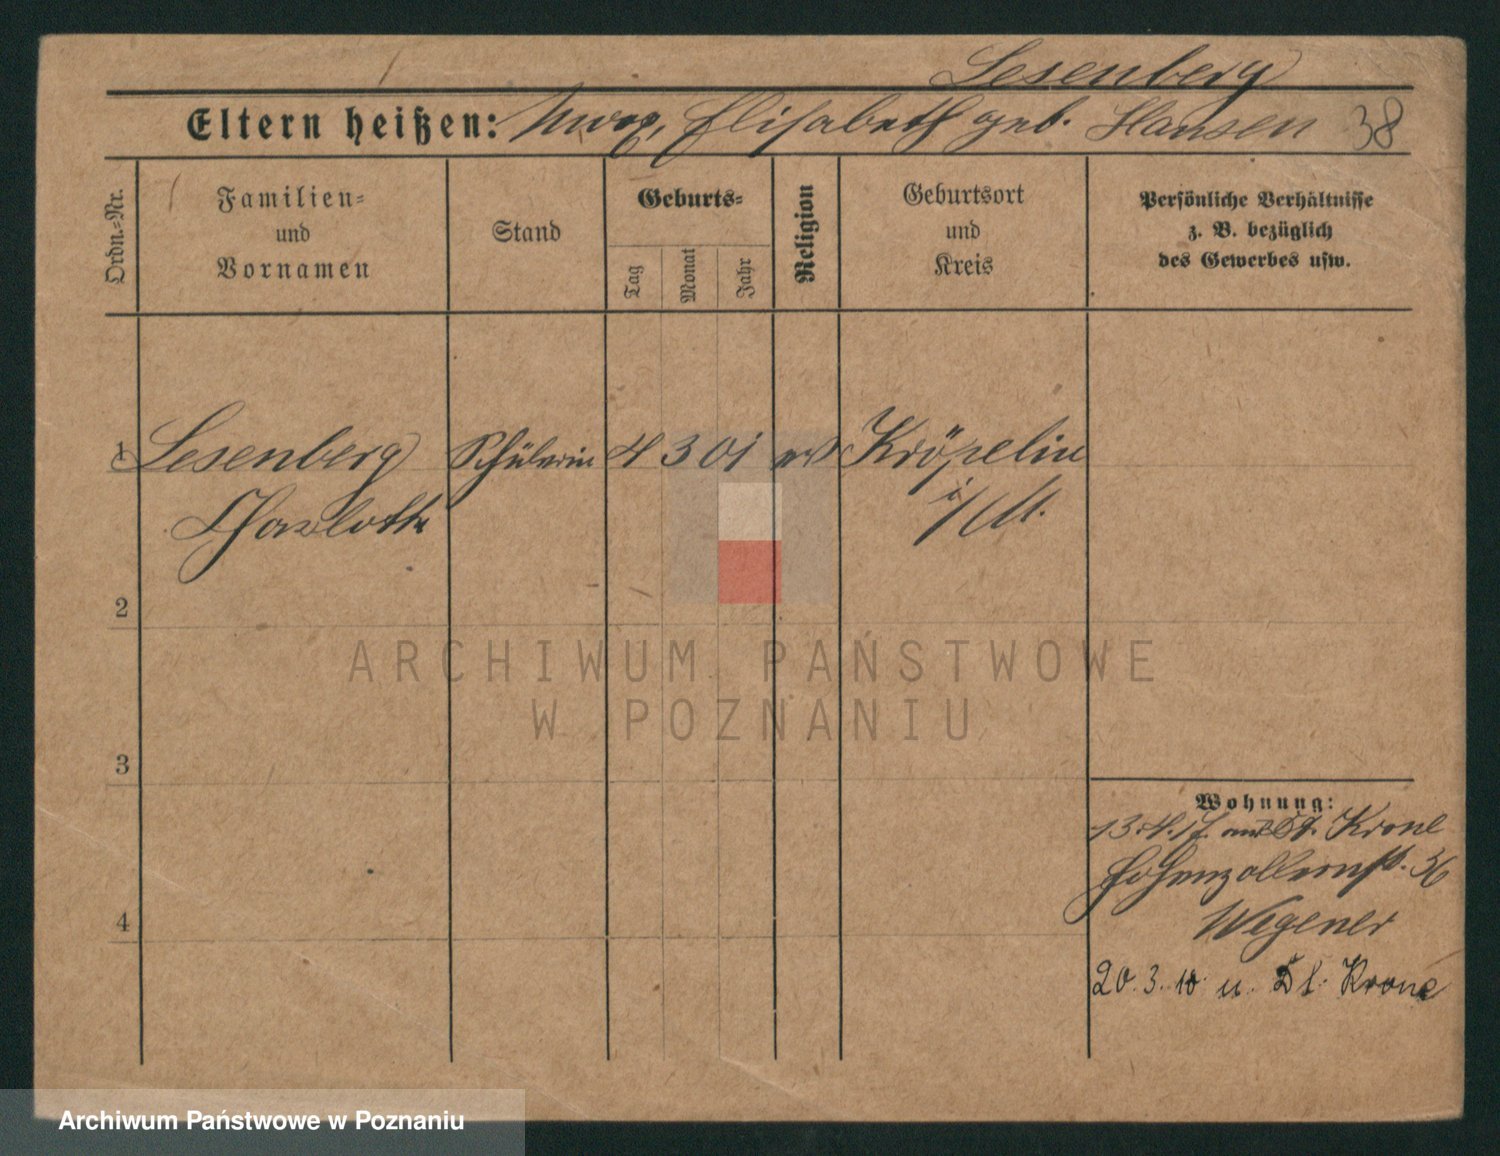 Lesenberg
Eltern heißen: Max, Elisabeth geb. Hansen 38
Ordn.=Nr.
Familien=
und
Vornamen
Stand
Geburts=
Tag
Monat
Jahr
Religion
Geburtsort
und
Kreis
Persönliche Verhältnisse
z. B. bezüglich
des Gewerbes usw.
1 Lesenberg Schülerin 4 3 01 ev Kröpelin
Charlotte i/M.
2
ARCHIWUM PAŃSTWOWE
W POZNANIU
3
Wohnung:
13.4.17. aus Dt. Krone
Hohenzollernstr. 36
Wegener
4
20. 3. 18 n. Dt. Krone
Archiwum Państwowe w Poznaniu